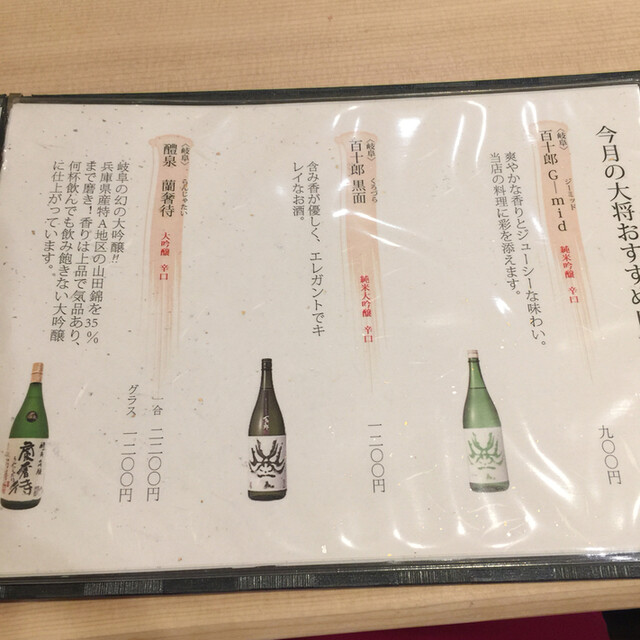 今月の大将おすすめ
〈岐阜〉
ジーミッド
百十郎 G―mid
純米吟醸 辛口
爽やかな香りとジューシーな味わい。
当店の料理に彩を添えます。
九〇〇円
〈岐阜〉
くろづら
百十郎 黒面
純米大吟醸 辛口
含み香が優しく、エレガントでキ
レイなお酒。
一二〇〇円
〈岐阜〉
らんじゃたい
醴泉 蘭奢待
大吟醸 辛口
岐阜の幻の大吟醸!!
兵庫県産特A地区の山田錦を35%
まで磨き!香りは上品で気品あり、
何杯飲んでも飲み飽きない大吟醸
に仕上がっています。
一合 二二〇〇円
グラス 一二〇〇円
蘭奢待